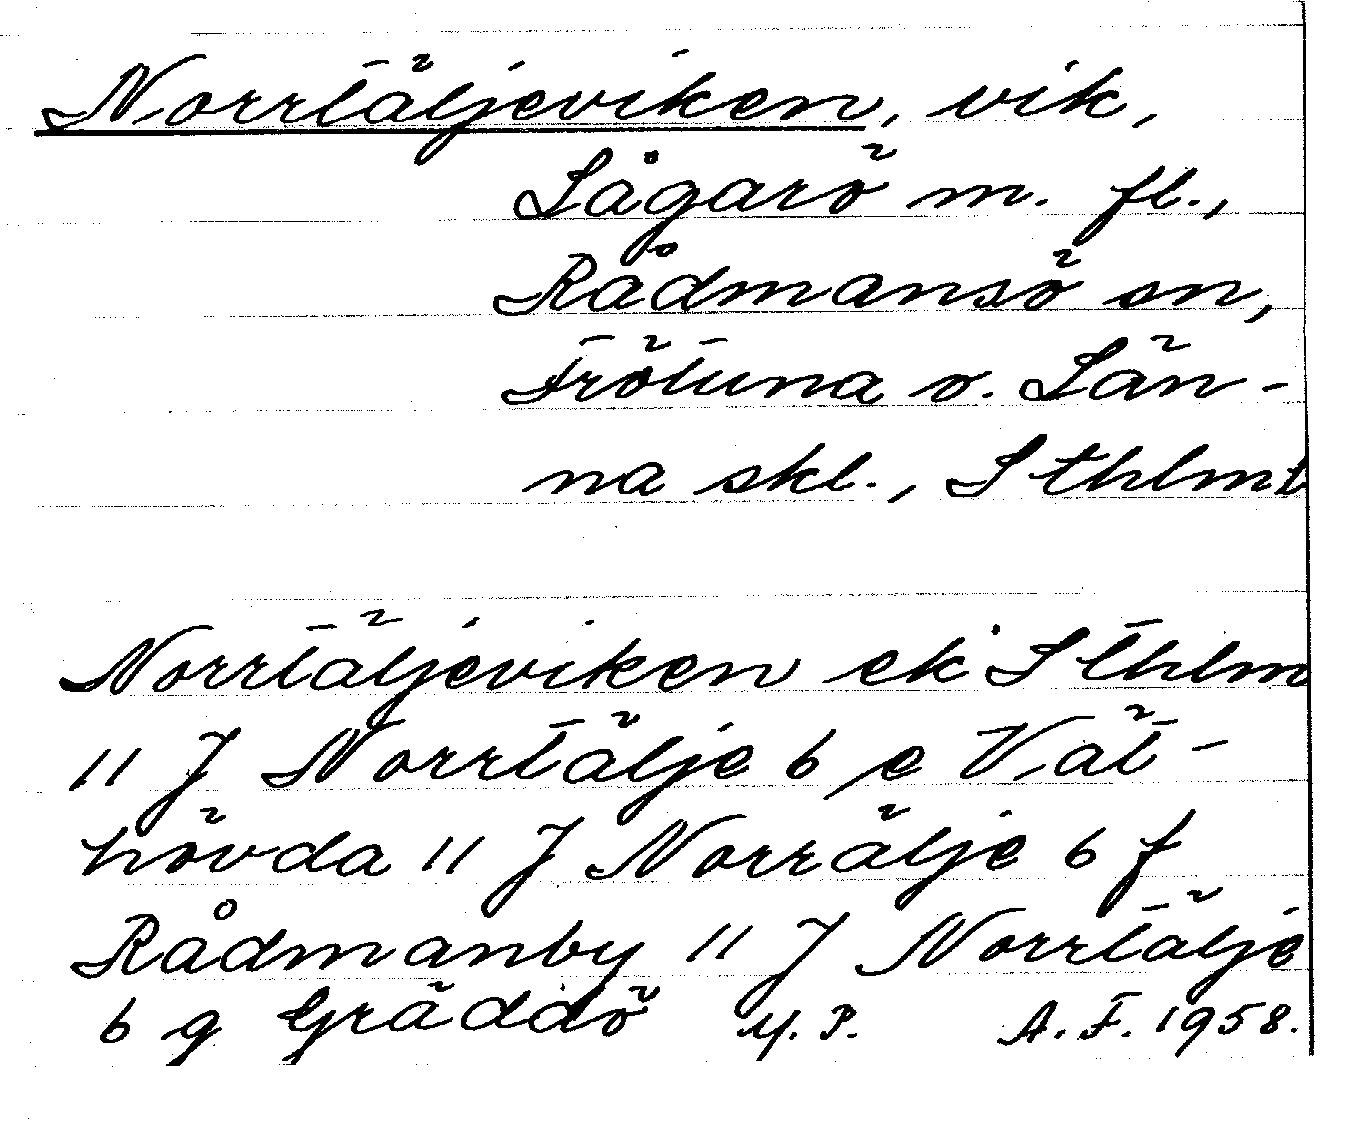 Norrtäljeviken, vik,
Lågarö m. fl.,
Rådmansö sn,
Frötuna o. Län-
na skl., Sthlm
Norrtäljeviken ek Sthlm
11 J Norrtälje 6 e Vät-
hövda 11 J Norrälje 6 f
Rådmanby 11 J Norrtälje
6 g Gräddö M. P. A. F. 1958.